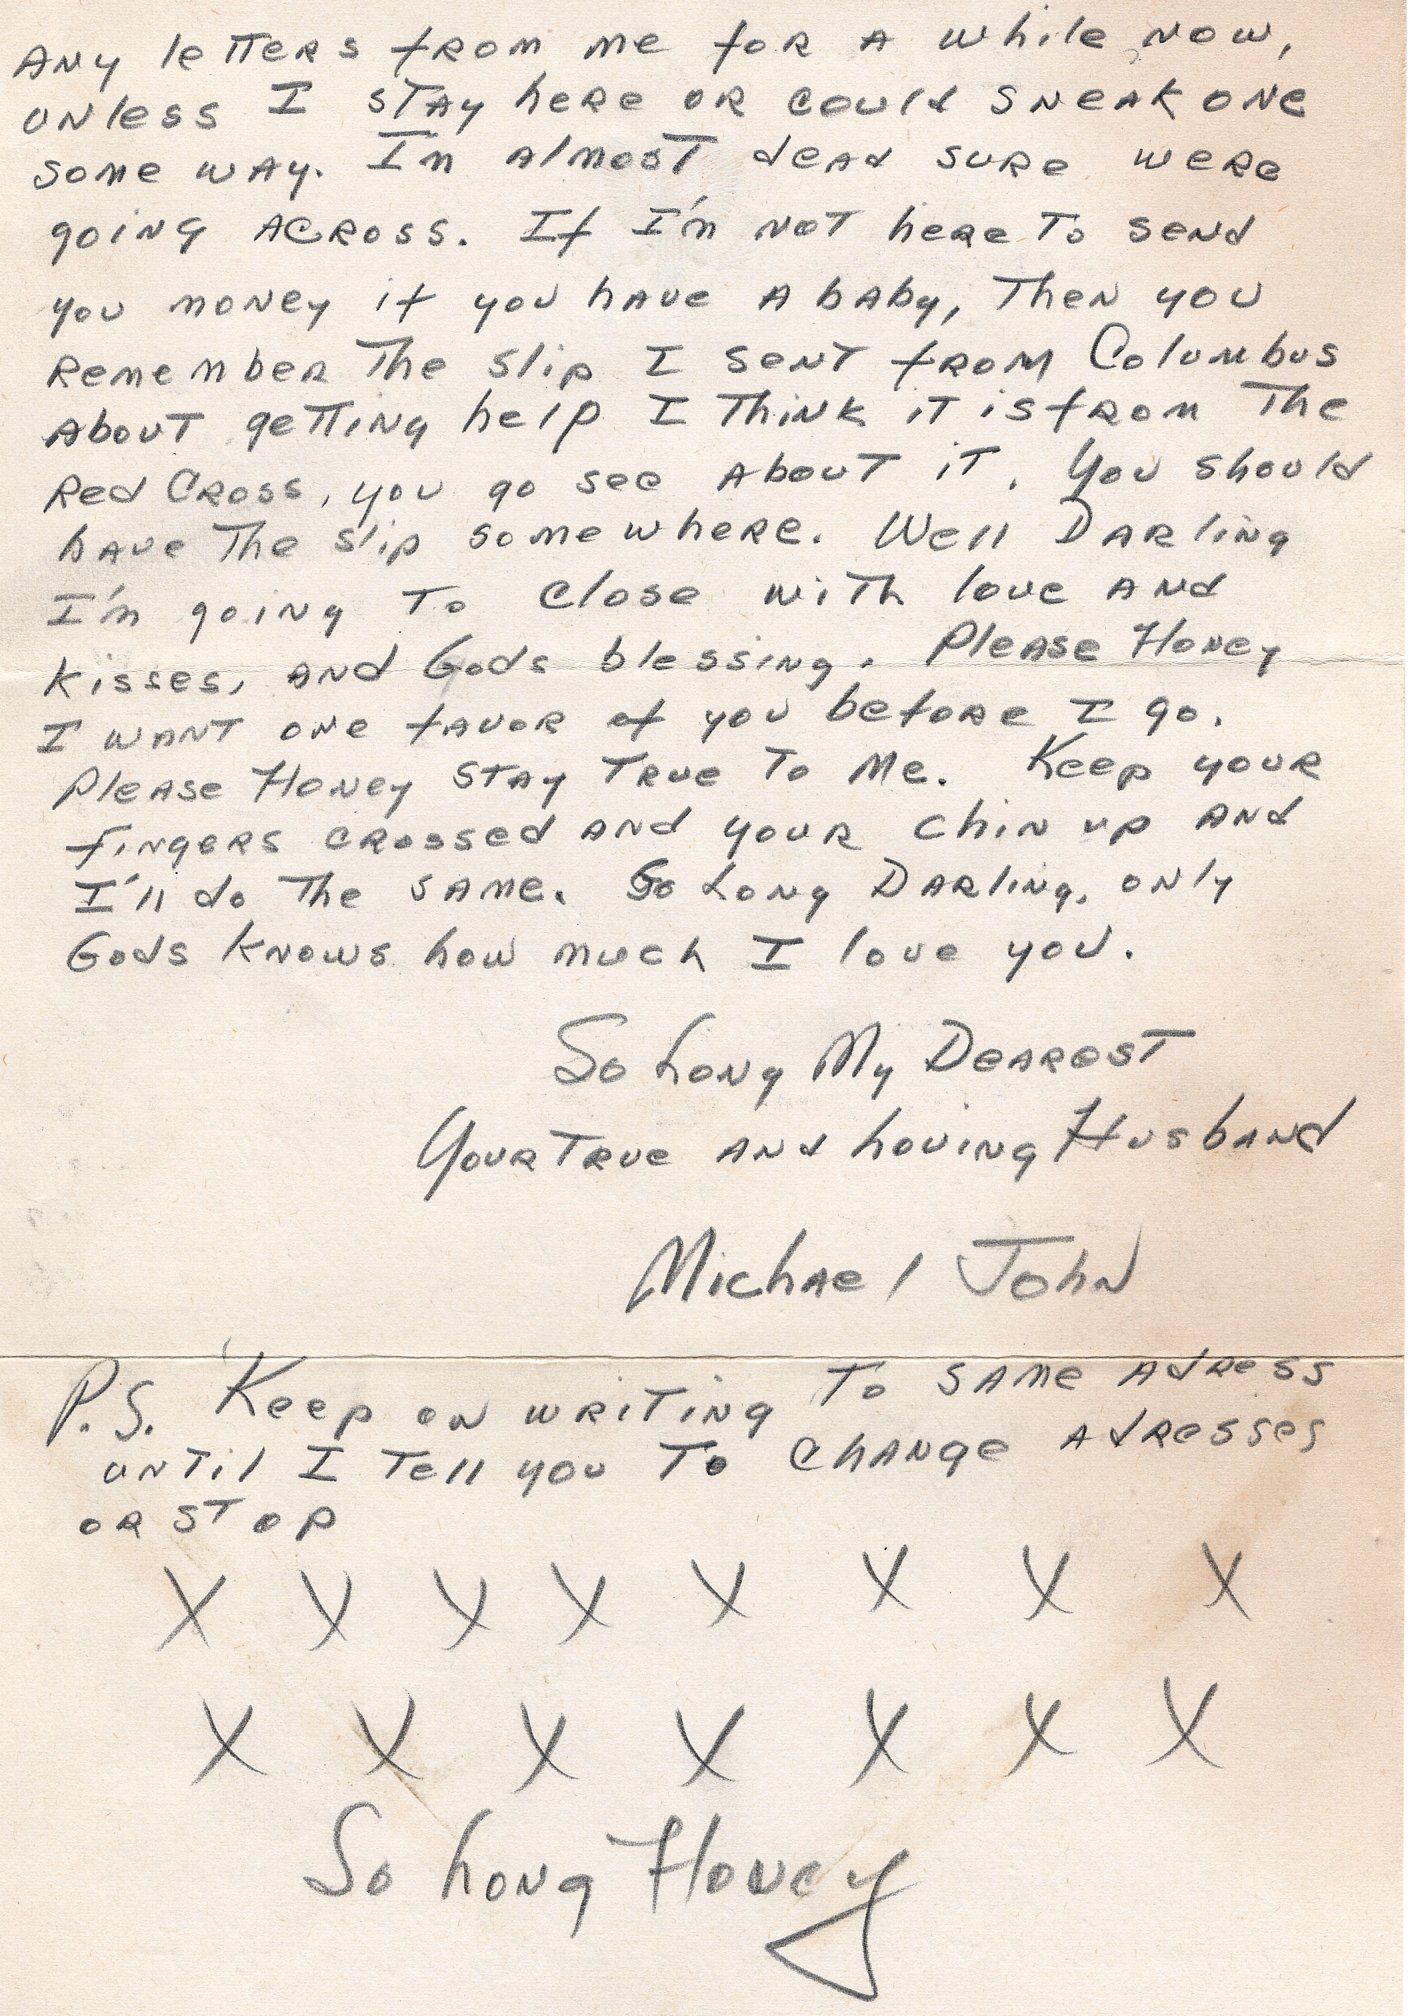 Any letters from me for a while now,
unless I stay here or could sneak one
some way. I'm almost dead sure were
going across. If I'm not here to send
you money if you have a baby, then you
remember the slip I sent from Columbus
about getting help I think it is from the
Red Cross, you go see about it. You should
have the slip somewhere. Well Darling
I'm going to close with love and
kisses, and Gods blessing. Please Honey
I want one favor of you before I go.
Please Honey stay true to me. Keep your
fingers crossed and your chin up and
I'll do the same. So Long Darling, only
Gods knows how much I love you.
So Long My Dearest
Your True and Loving Husband
Michael John
P.S. Keep on writing to same adress
until I tell you to change adresses
or stop
X X X X X X X X
X X X X X X X
So Long Honey